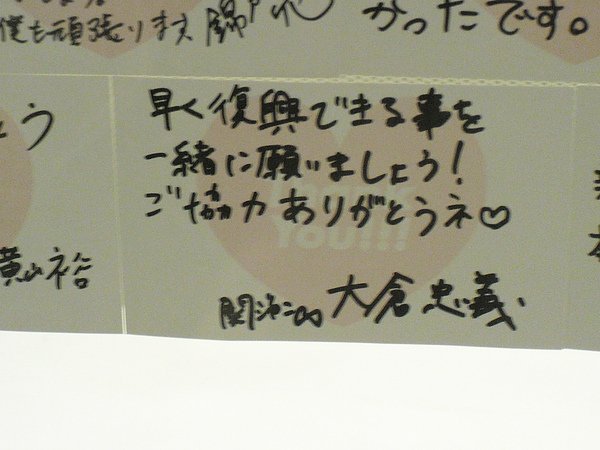 僕も頑張ります 錦戸亮
かったです。
ょう
横山裕
早く復興できる事を
一緒に願いましょう!
ご協力ありがとうネ♡
YOU!!!
関ジャニ∞ 大倉忠義